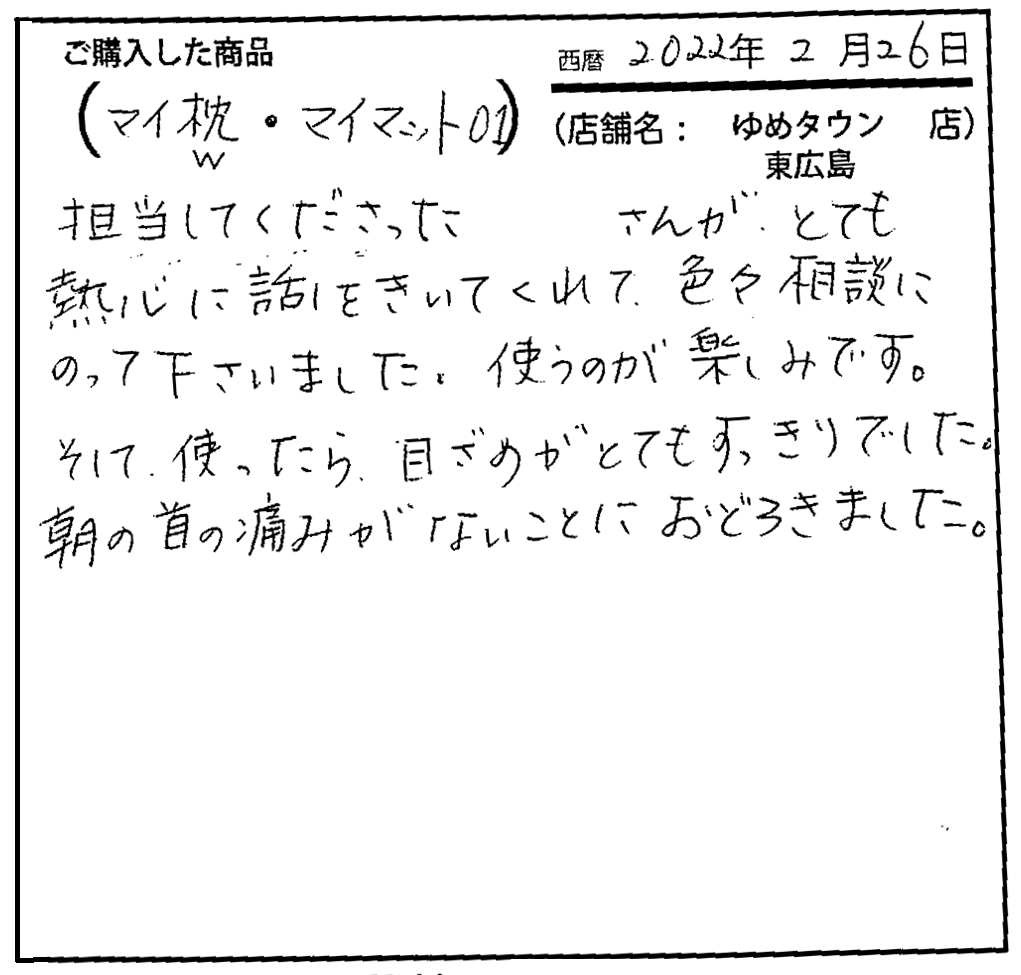 ご購入した商品
西暦 2022年 2月26日
(マイ枕・マイマット01)
W
(店舗名： ゆめタウン 店)
東広島
担当してくださった さんが、とても
熱心に話をきいてくれて、色々相談に
のって下さいました。使うのが楽しみです。
そして、使ったら、目ざめがとてもすっきりでした。
朝の首の痛みがないことにおどろきました。